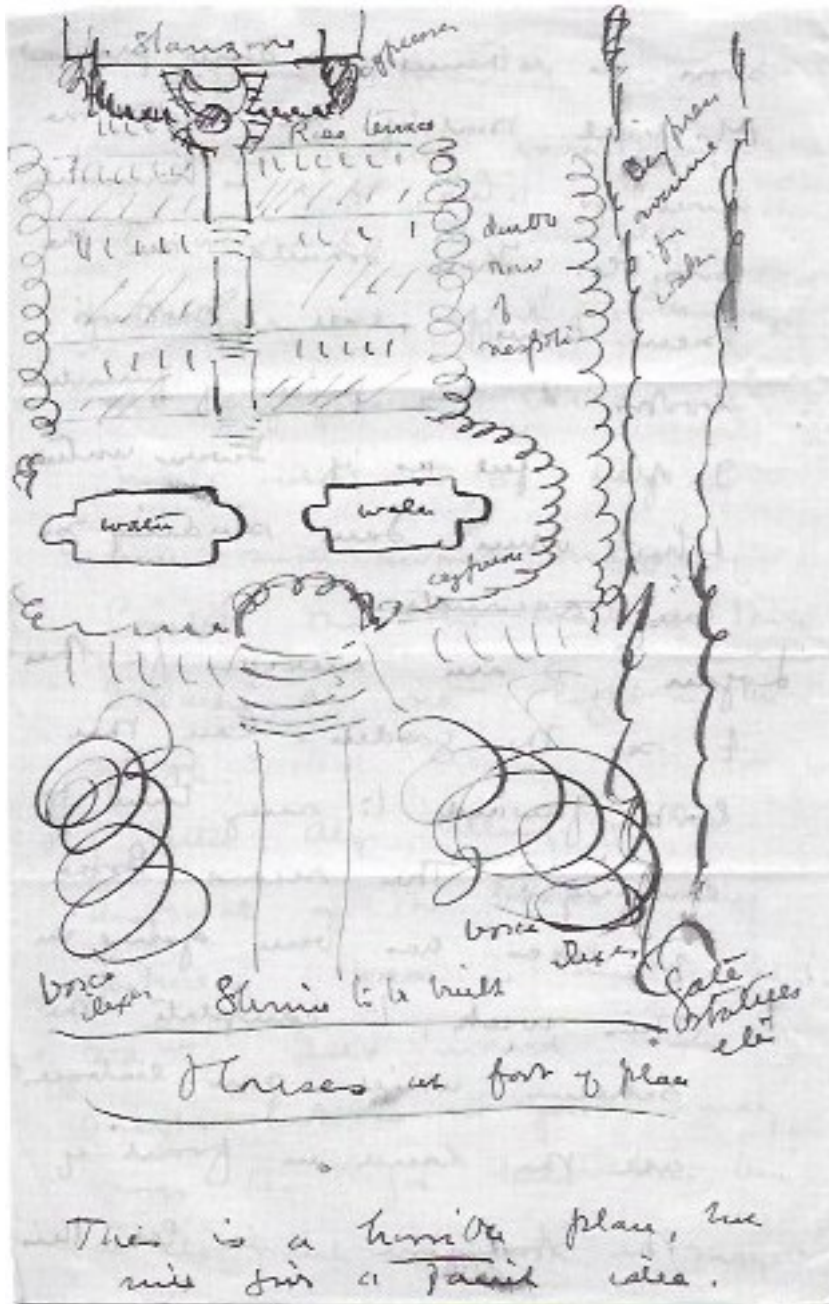 Stanzone
cypresses
Rose terrace
double
row
of
nespoli
Cypress
avenue
for
water
water
cypresses
bosco
ilexes
bosco
ilexes
Gate
Statues
etc
Shrine to be built
Houses at foot of place
This is a horrible plan, but
will give a faint idea.